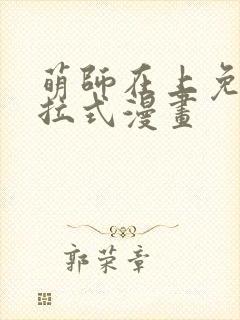 萌師在上免
拉式漫畫
郭荣章